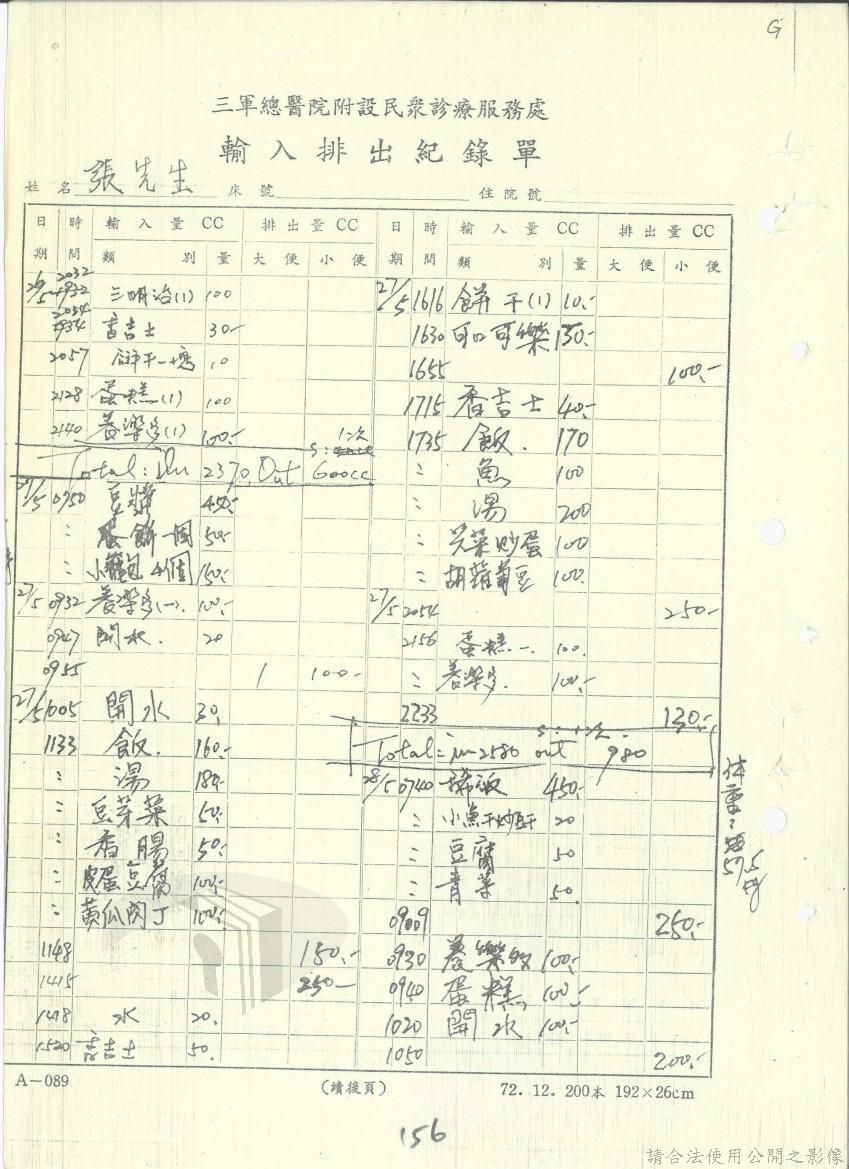 G
三軍總醫院附設民眾診療服務處
輸入排出紀錄單
姓名 張先生 床號 住院號
日期 時間 輸入量 CC 排出量 CC 日期 時間 輸入量 CC 排出量 CC
類別 量 大便 小便 類別 量 大便 小便
26/5 2032 三明治(1) 100
2034 吉士 30-
2057 餅干一塊 10
2128 蛋糕(1) 100
2140 養樂多(1) 100.-
S: 1次
Total: In 2370, Out 600cc
27/5 0750 豆漿 450.-
: 蛋餅一個 50.-
: 小籠包 4個 150.-
27/5 0932 養樂多(一). 100.-
0947 開水. 20
0955 1 100-
27/5 1005 開水 30.
1133 飯. 160.-
: 湯 180.-
: 豆芽菜 50.-
: 香腸 50.-
: 皮蛋豆腐 100.-
: 黃瓜肉丁 100.-
1148 150.-
1415 250-
1418 水 20.
1520 吉士 50.
27/5 1616 餅干(1) 10.-
1630 可口可樂 150.-
1655 100.-
1715 香吉士 40.-
1735 飯. 170
: 魚 100
: 湯 200
: 炒蛋 100
: 胡蘿蔔豆 100.
27/5 2054 250-
2156 蛋糕一. 100.
: 養樂多. 100.-
2233 130.-
S: 1次.
Total: in 2580 out 980
28/5 0740 稀飯 450.-
: 小魚干炒 20
: 豆腐 50
: 青菜 50.
0909 250.-
0930 養樂多 100.-
0940 蛋糕 100.-
1020 開水 100.-
1050 200.-
体重: 57.5 kg
A-089 (續後頁) 72. 12. 200本 192×26cm
156
請合法使用公開之影像